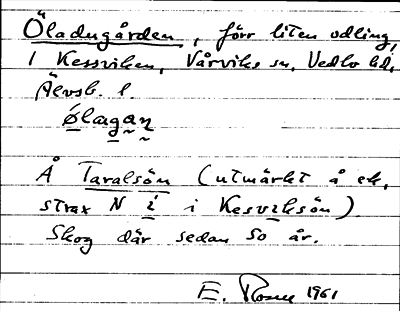 Öladugården, förr liten odling,
i Kessviken, Vårviks sn, Vedbo hd,
Älvsb. l.
ölagan
Å Taralsön (utmärkt å ek,
strax N i i Kesviksön)
Skog där sedan 50 år.
E. Rosen 1961